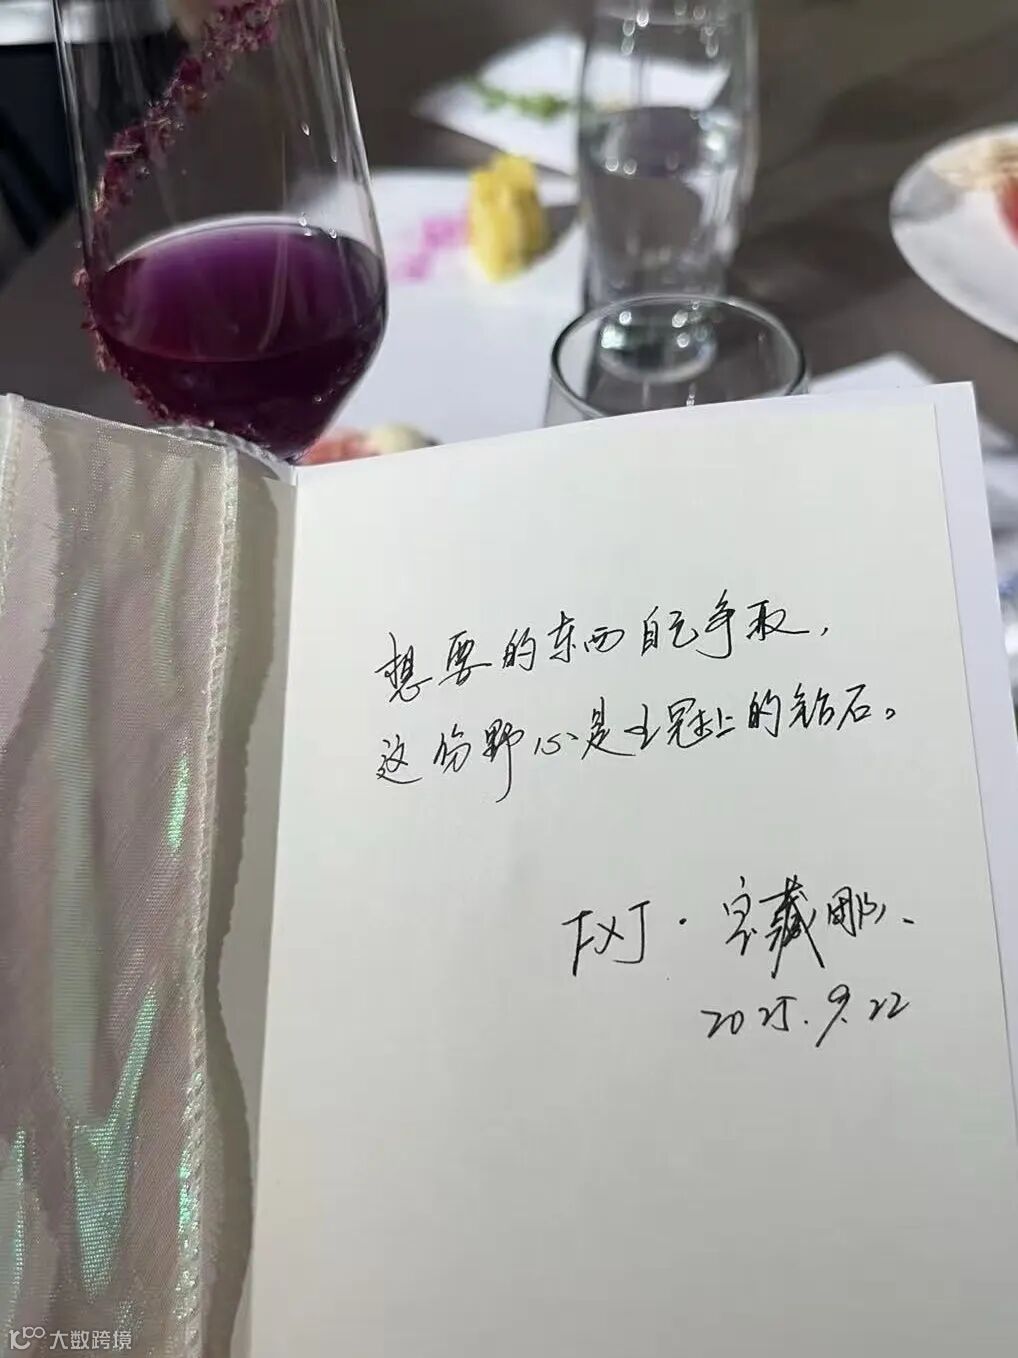 想要的东西自己争取，
这份野心是王冠上的钻石。
FXJ·宝藏
2025.9.22
大数跨境